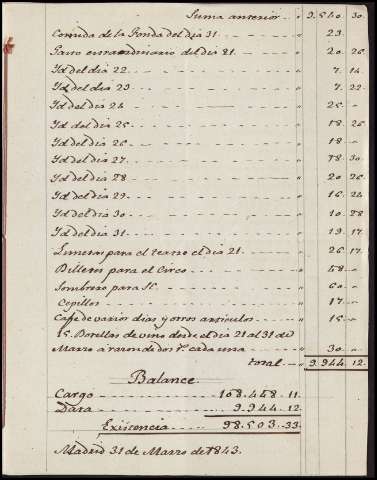 Suma anterior 9.540 30.
Comida de la Fonda del dia 31 23.
Gasto extraordinario del dia 21. 20 26
Yd del dia 22 7. 14
Yd del dia 23 7. 22
Yd del dia 24 25
Yd del dia 25 18. 26
Yd del dia 26 18
Yd del dia 27 18. 30
Yd del dia 28 20 26
Yd del dia 29 16 24
Yd del dia 30 10 28
Yd del dia 31 19. 17
para el teatro el dia 21 26 17
Billetes para el Circo 48
Sombrero para 60
Cepillos 17
Cafe de varios dias y otros articulos 15
15. Botellas de vino desde el dia 21 al 31 de
Marzo a razon de dos r.s cada una 30
total 9.944 12.
Balance
Cargo 108.448.11.
Data 9.944.12
Existencia 98.503.33.
Madrid 31 de Marzo de 1843.